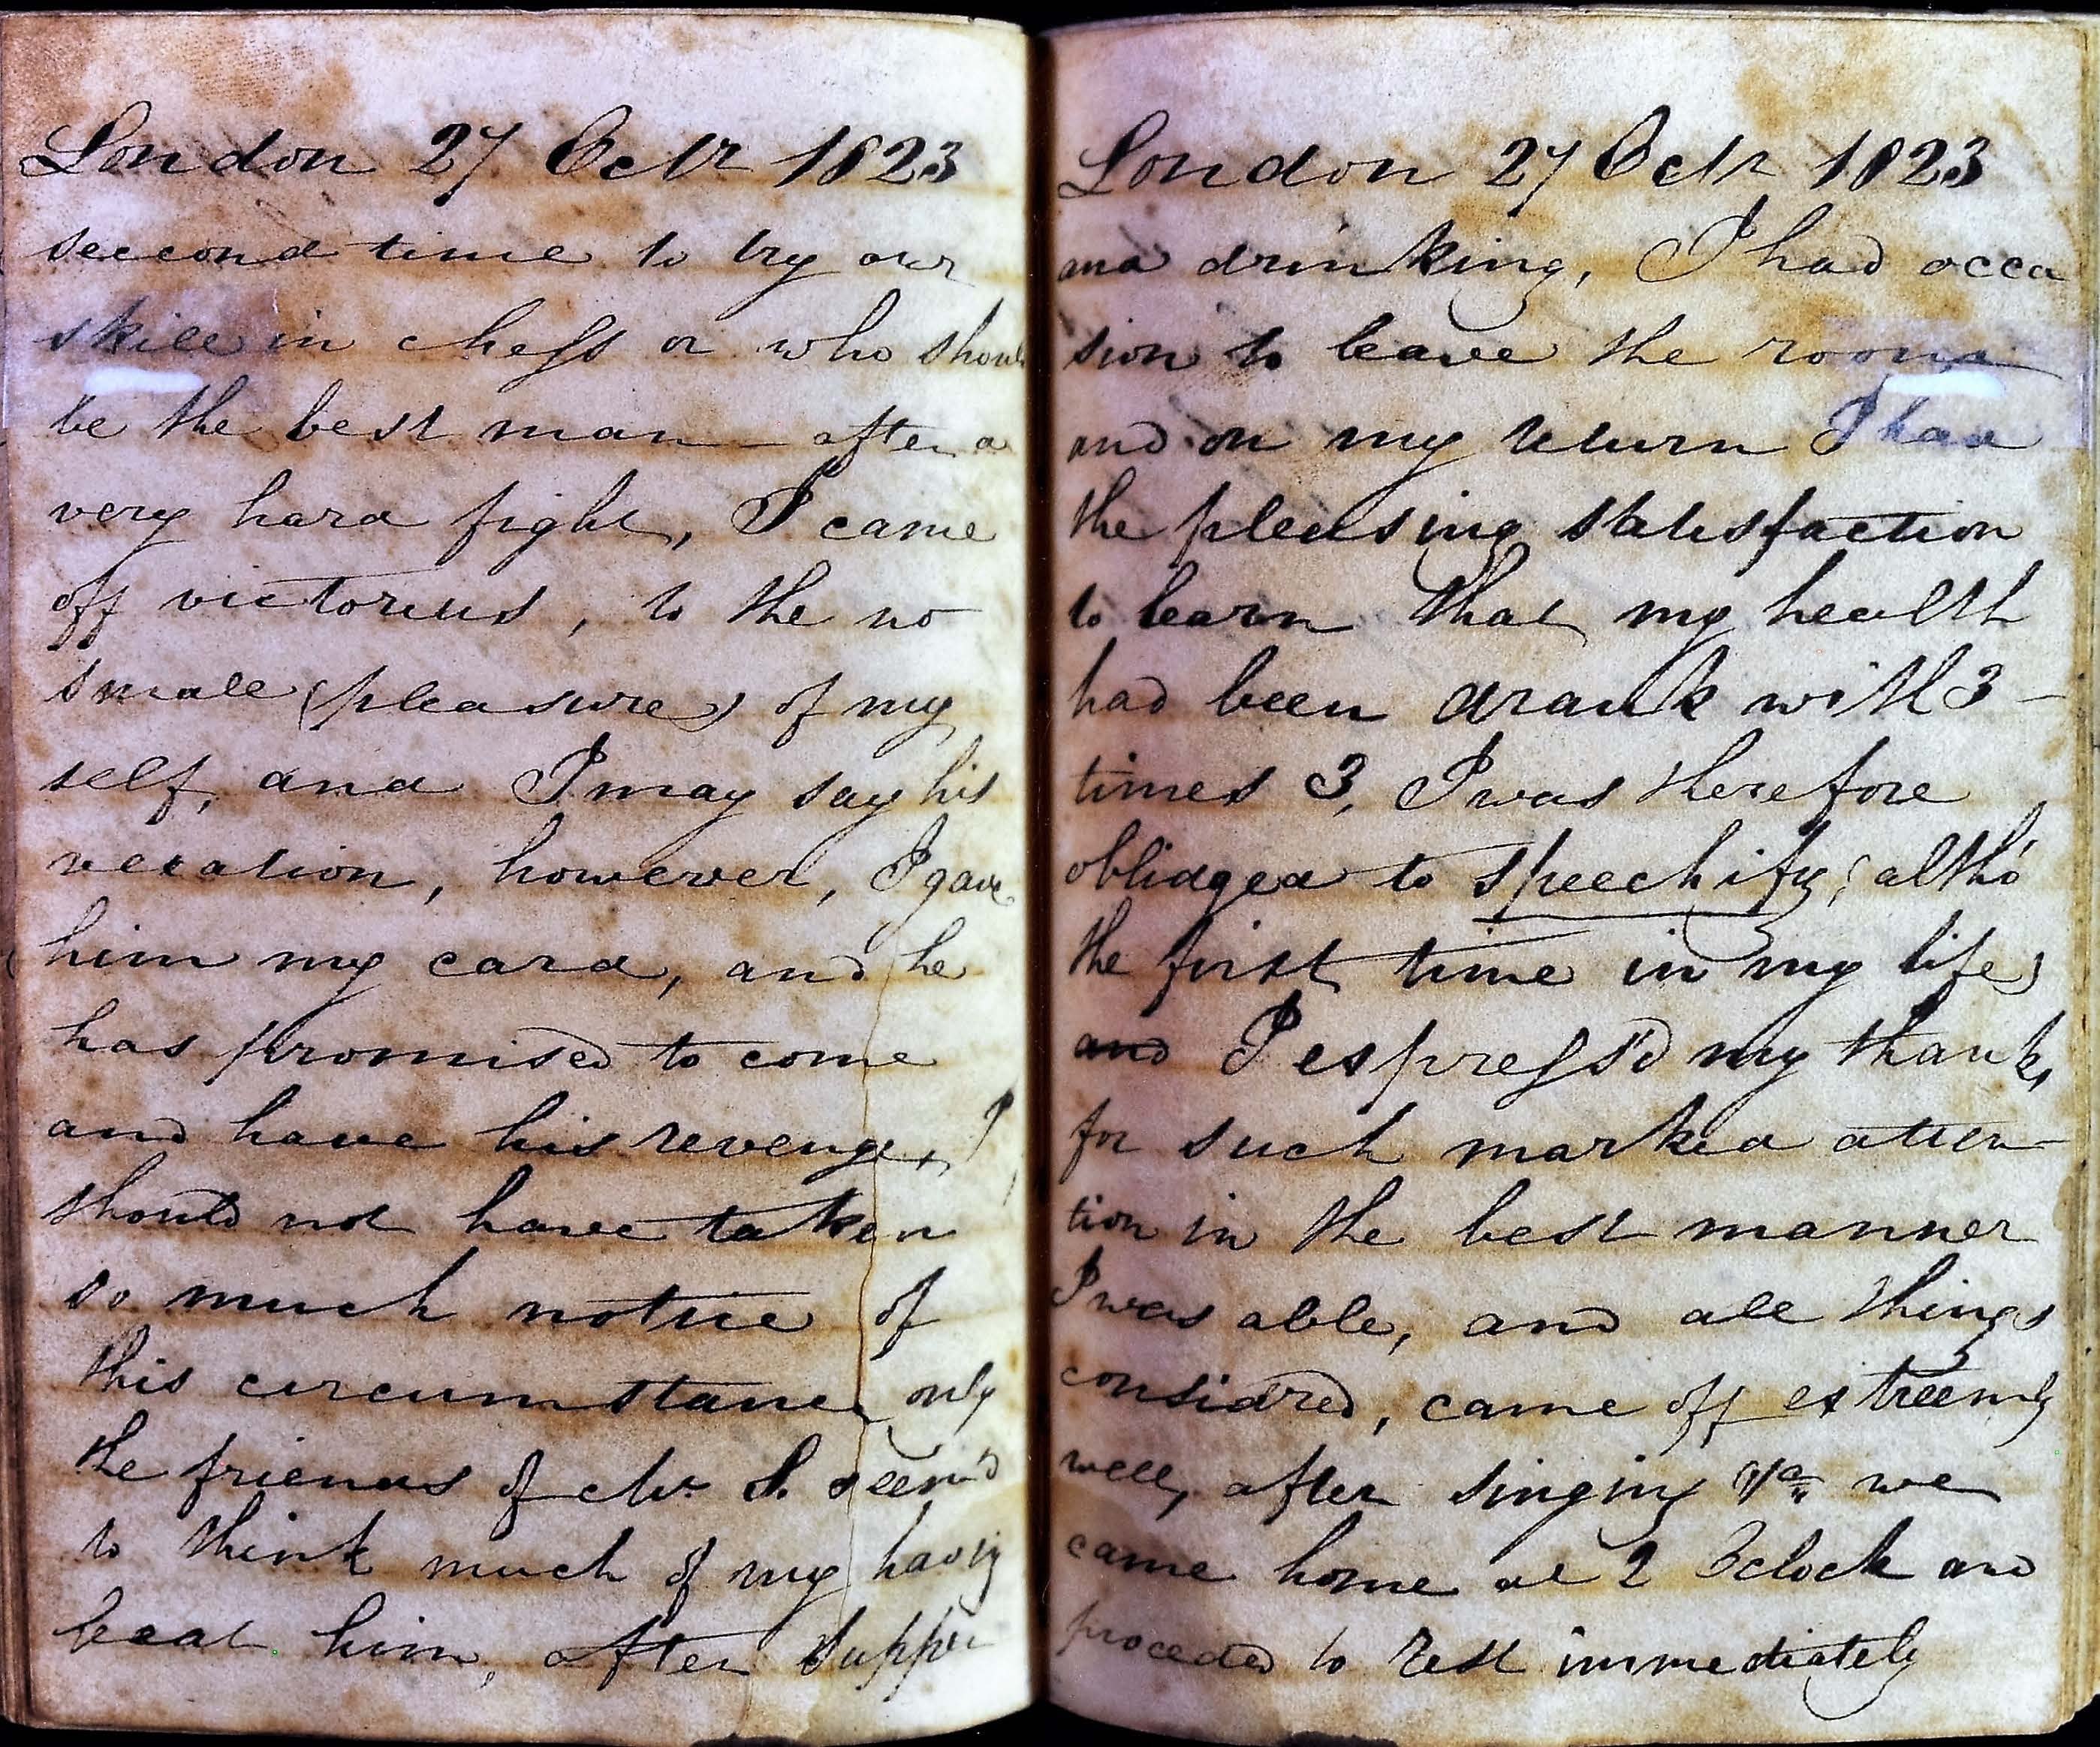 London 27 Octr 1823
seccond time to try our
skill in chess or who should
be the best man - after a
very hard fight, I came
off victorius, to the no
small (pleasure) of my
self, and I may say his
vexation, however, I gave
him my card, and he
has promised to come
and have his revenge, I
should not have taken
so much notice of
this circumstance, only
the friends of Mr. S. seem'd
to think much of my having
beat him, after supper
London 27 Octr 1823
and drinking, I had occa
sion to leave the room
and on my return I had
the pleasing satisfaction
to learn that my health
had been drank with 3 -
times 3, I was therefore
oblidged to speechify, (altho'
the first time in my life)
and I express'd my thanks,
for such marked atten-
tion in the best manner
I was able, and all things
considred, came off extreemly
well, after singing &c we
came home at 2 Oclock and
proceded to rest immediately